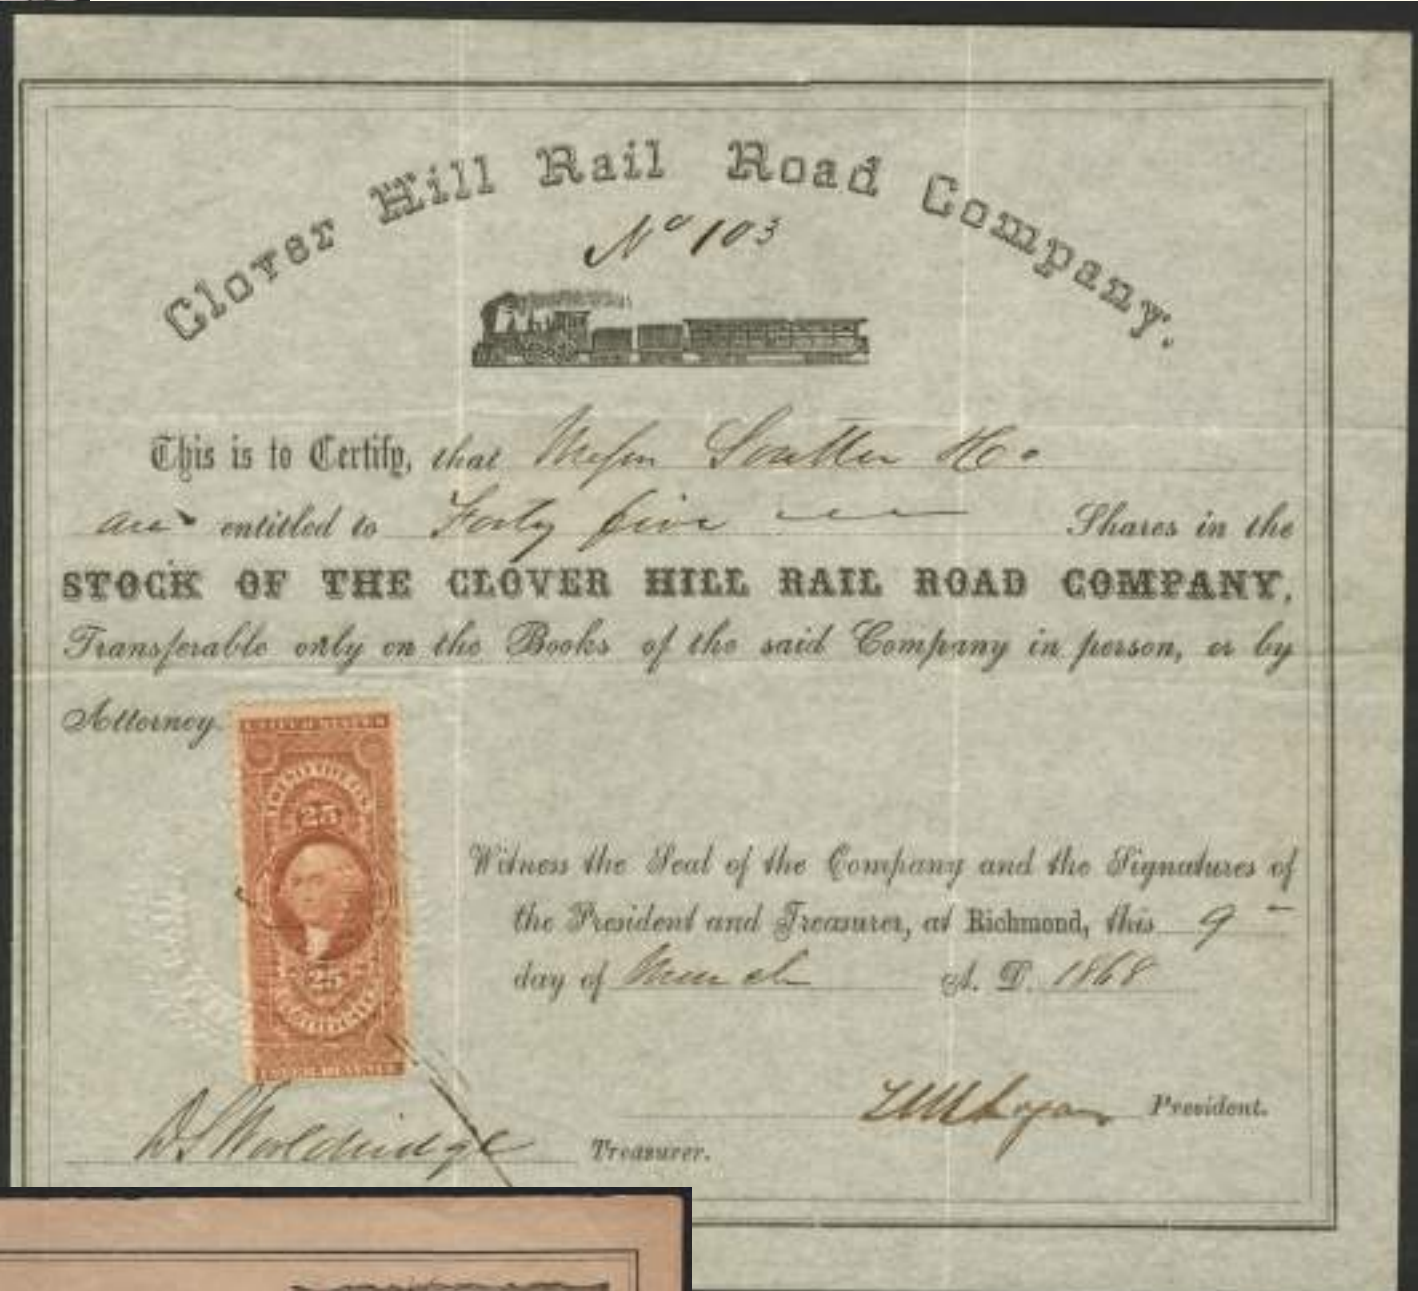 Clover Hill Rail Road Company.
No 103
This is to Certify, that Messrs Soutter & Co
are entitled to Forty five Shares in the
STOCK OF THE CLOVER HILL RAIL ROAD COMPANY,
Transferable only on the Books of the said Company in person, or by
Attorney.
25
25
Witness the Seal of the Company and the Signatures of
the President and Treasurer, at Richmond, this 9
day of March A. D. 1868
T M Logan President.
D S Wooldridge Treasurer.